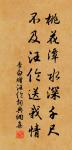 桃花潭水深千尺
不及汪伦送我情
李白赠汪伦